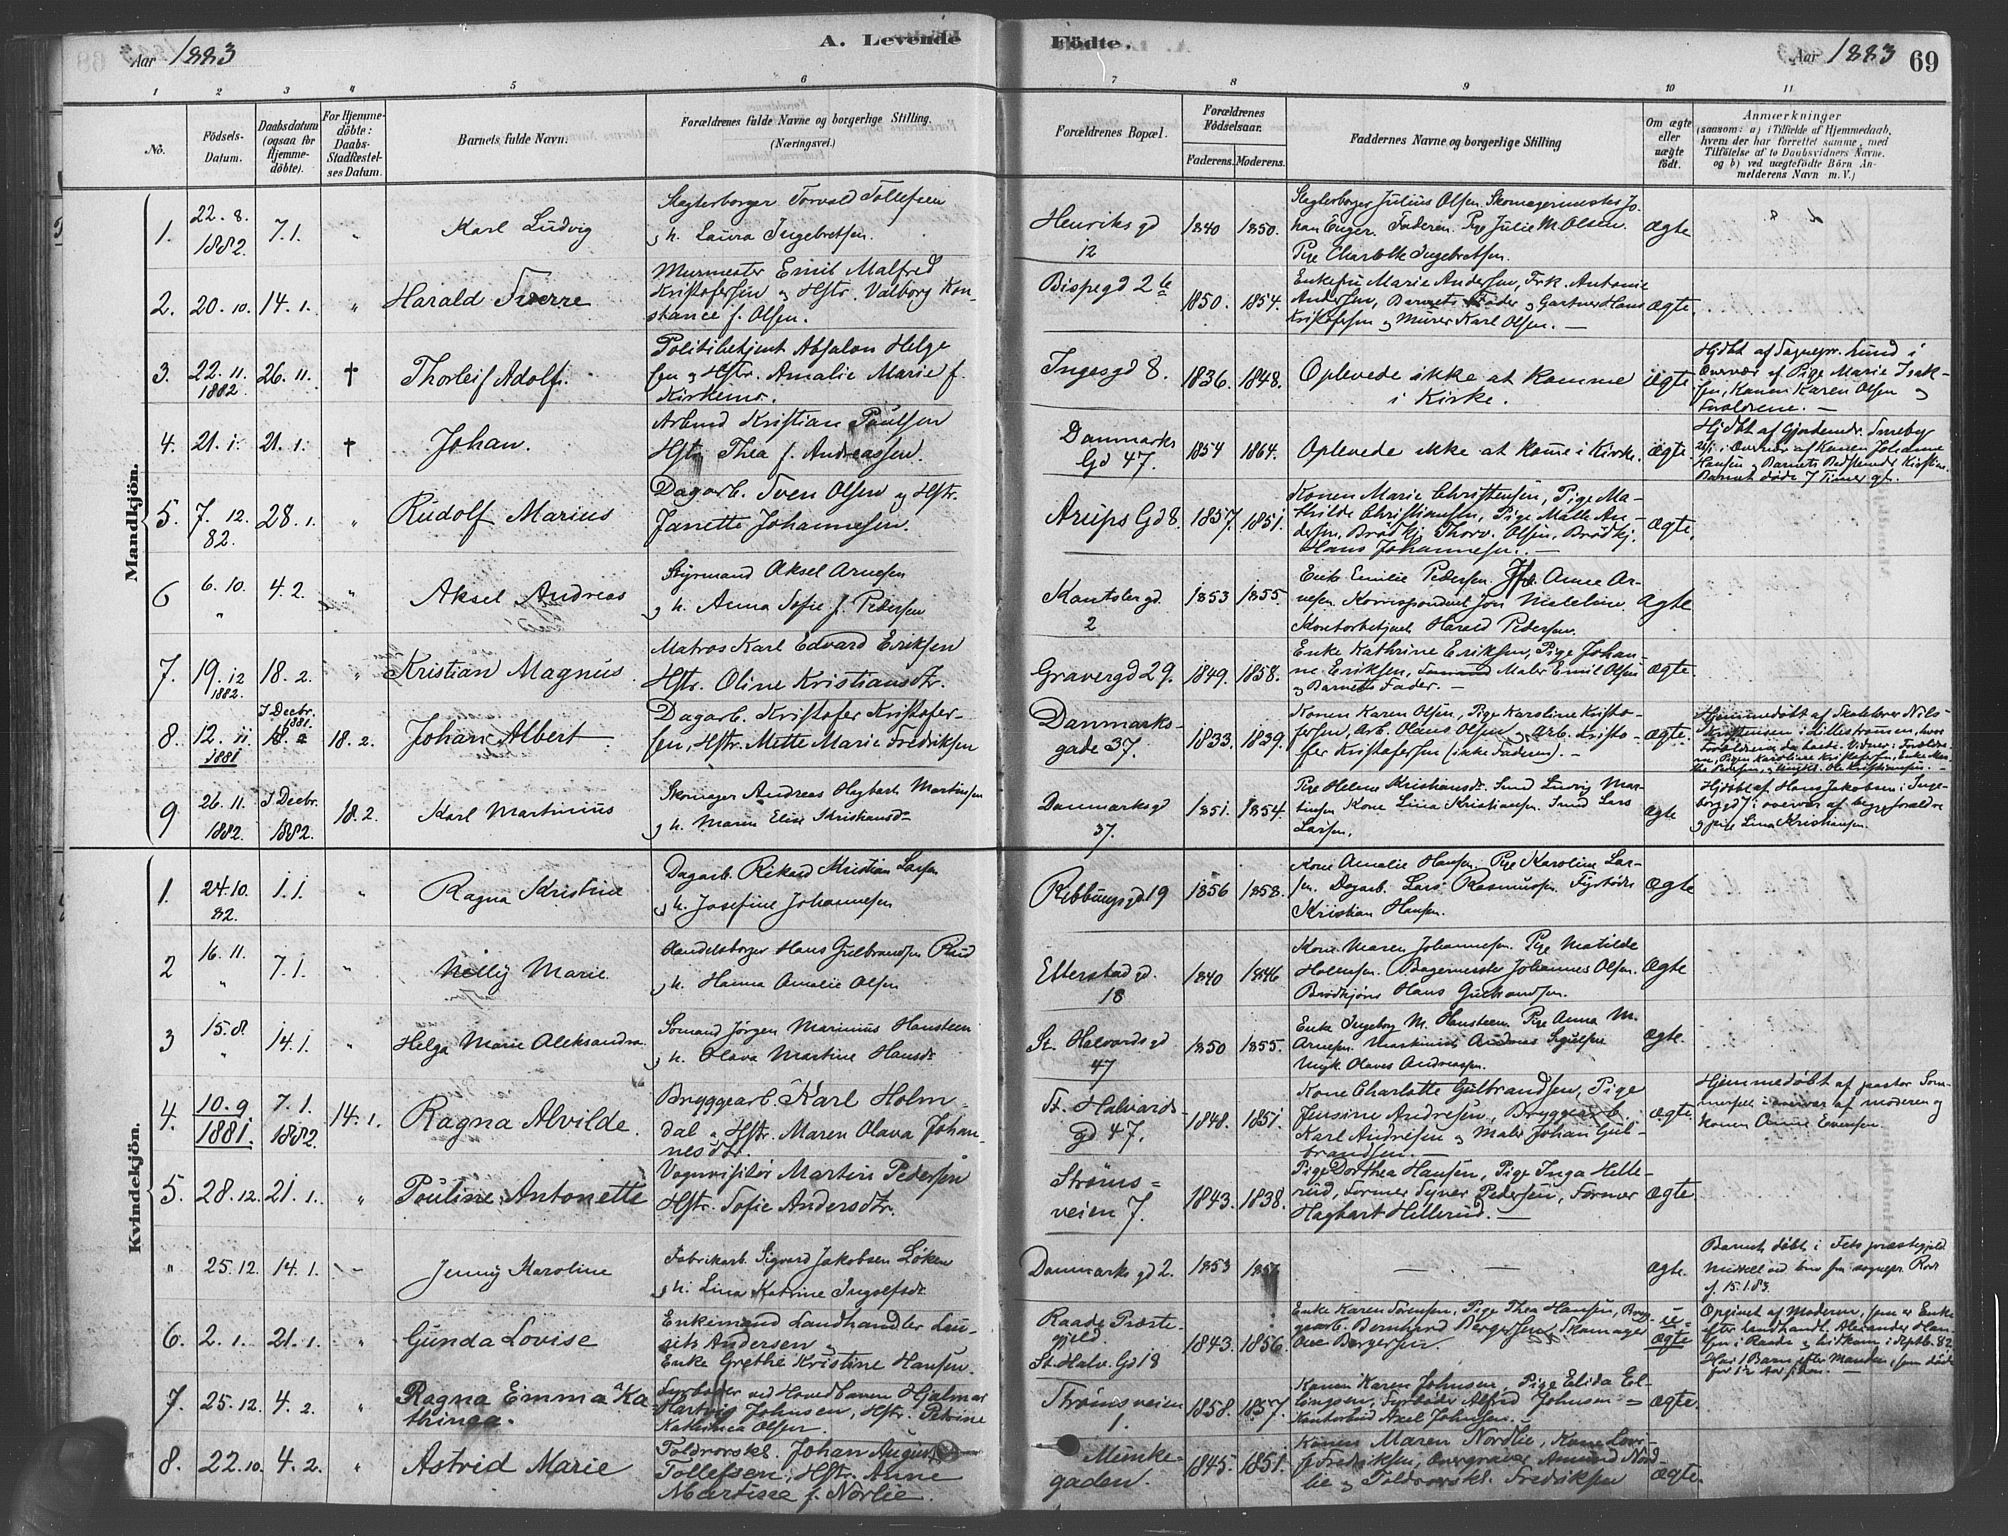 Aar 1883
A. Levende
Födte.
Aar 1883
69
1 2 3 4 5 6 7 8 9 10 11
No.
Födsels-
Datum.
Daabsdatum
(ogsaa for
Hjemme-
döbte).
For Hjemme-
döbte:
Daabs-
Stadfæstel-
ses Datum.
Barnets fulde Navn.
Forældrenes fulde Navne og borgerlige Stilling.
(Næringsvei.)
Forældrenes Bopæl.
Forældrenes
Födselsaar.
Faderens. Moderens.
Faddernes Navne og borgerlige Stilling
Om ægte
eller
uægte
födt.
Anmærkninger
(saasom: a) i Tilfælde af Hjemmedaab,
hvem der har forrettet samme, med
Tilföielse af to Daabsvidners Navne.
og b) ved uægtefödte Börn An-
melderens Navn m. V.)
Mandkjön.
1. 22.8. 1882. 7.1. " Karl Ludvig
Slagterborger Torvald Tollefsen
og h. Laura Ingebretsen.
Henriksgd 12 1840 1850.
Slagterborger Julius Olsen. Skomagermester Jo-
han Enger. Faderen. Pige Julie M. Olsen.
Pige Charlotte Ingebretsen.
Ægte
2. 20.10. 14.1. " Harald Sverre
Murmester Emil Malfred
Kristofersen og Hstr. Valborg Kon-
stance f. Olsen.
Bispegd 2b 1850. 1854.
Enkefru Marie Andersen, Frk. Antonie
Andersen, Barnets Fader og Gartner Hans
Kristofersen og Murer Karl Olsen.
ægte
3. 22.11. 1882 26.11. † Thorleif Adolf.
Politibetjent Absalon Helge-
sen og Hstr. Amalie Marie f.
Kirkemo.
Ingesgd 8. 1836. 1848.
Oplevede ikke at komme
i Kirke.
ægte
Hjdbt af Sognepr. Lund i
Overvær af Pige Marie Isak-
sen, Konen Karen Olsen og
Forældrene.
4. 21.1. 21.1. † Johan.
Arbmd Kristian Paulsen
Hstr Thea f. Andreassen.
Danmarks
Gd 47. 1854 1864.
Oplevede ikke at komme i Kirke.
ægte.
Barnet døde 7 Timer gt.
5. 7.12. 82. 28.1. " Rudolf Marius
Dagarb. Sven Olsen og Hstr.
Janette Johannesen.
Arups Gd 8. 1857. 1851.
Konen Marie Christensen, Pige Ma-
thilde Christiansen, Pige Malle An-
dersen, Brödkj. Thorv. Olsen, Brödkj.
Hans Johannesen.
ægte.
6 6.10. " 4.2. " Aksel Andreas
Styrmand Aksel Arnesen
og h. Anna Sofie f. Pedersen
Kantslergd. 2 1853 1855.
Enke Emilie Pedersen. Anne Ar-
nesen. Korrespondent Jon Madeline.
Kontorbetjent Harald Pedersen.
ægte
7. 19.12 1882. 18.2. " Kristian Magnus
Matros Karl Edvard Eriksen
Hstr. Oline Kristiansdtr.
Gravergd 29. 1849. 1858.
Enke Kathrine Eriksen, Pige Johan-
ne Eriksen, Maler Emil Olsen
og Barnets Fader.
ægte.
8. 12.11 1881 I Decbr. 1881. 18.2. Johan Albert
Dagarb. Kristofer Kristofer-
sen, Hstr. Mette Marie Fredriksen
Danmarks-
gade 37. 1833. 1839.
Konen Karen Olsen, Pige Karoline Kristo-
fersen, Arb. Olaus Olsen og Arb. Kristo-
fer Kristofersen (ikke Faderen).
ægte.
Hjemmedøbt af Skolelærer Nils
Kristensen i Lillestrømmen, hvor
Forældrene da boede. Vidner: Forældre-
ne, Pigen Karoline Kristofersen, Enke
9 26.11. 1882. I Decbr. 1882. 18.2. Karl Martinius
Skomager Andreas Hagbart Martinsen
og h. Maren Elise Kristiansdr
Danmarksgd 37. 1851. 1854.
Pige Helene Kristiansdr. Smed Ludvig Mar-
tinsen Kone Lina Kristiansen. Smed Lars
Larsen.
ægte
Hjdøbt af Hans Jakobsen i Inge-
borggd 7 i overvær af begge forældre
og pige Lina Kristiansen.
Kvindekjön.
1. 24.10. 82. 1.1. " Ragna Kristine
Dagarb. Rikard Kristian Larsen
og h. Josefine Johannesen
Ribbungsgd 19 1856 1858.
Kone Amalie Hansen Pige Karoline Lar-
sen. Dagarb. Lars Rasmussen. Fyrbøder
Kristian Hansen.
Ægte
2 16.11. " 7.1. " Nelly Marie
Handelsborger Hans Gulbrandsen Rud
og h. Hanna Amalie Olsen
Etterstadgd. 18 1840 1846
Kone Maren Johannesen. Pige Matilde
Hallensen. Bagermester Johannes Olsen.
Brødkjører Hans Gulbrandsen.
Ægte
3 15.8. " 14.1. " Helga Marie Aleksandra
Sømand Jørgen Marinius Hansteen
og h. Olava Martine Hansdr
St. Halvardsgd 47 1850 1855.
Enke Ingeborg M. Hansteen. Pige Anna M.
Arnesen. Maskinist Andreas
Ungk. Olaves Andreassen.
ægte.
4. 10.9. 1881. 7.1. 1882. 14.1. Ragna Alvilde.
Bryggearb. Karl Holm-
dal og Hstr. Maren Olava Johan-
nesdtr.
St. Halvards-
gd 47. 1848. 1851.
Kone Charlotte Gulbrandsen, Pige
Jensine Andresen, Bryggearb.
Karl Andresen og Maler Johan Gul-
brandsen.
ægte
Hjemmedøbt af pastor Som-
merfelt i overvær af moderen og
Konen Anne Evensen.
5. 28.12. 21.1. " Pauline Antonette
Vognvisitør Martin Pedersen
Hstr. Sofie Andersdtr.
Strøms-
veien 7. 1843. 1838.
Pige Dorthea Hansen, Pige Inga Helle-
rud, Former Syver Pedersen, Former
Hagbart Hellerud.
ægte
" 25.12. 14.1. Jenny Karoline
Fabrikarb. Sigvard Jakobsen Løken
og h. Lina Katrine Ingolfsdr
Danmarksgd 2. 1853
ægte.
Barnet døbt i Fets præstegjeld
f. 15.1.83.
6. 2.1. 21.1. " Gunda Lovise
Enkemand Landhandler Lau-
rits Andersen og
Enke Grethe Kristine Hansen.
Raade Præste-
gjeld
St. Halv. Gd 18 1843. 1856.
Enke Karen Sørensen, Pige Thea Hansen, Bryg-
gearb. Bernhard Bergersen og Skomager
Ole Bergersen.
u-
ægte
Opgivet af Moderen, som er Enke
efter Landhandl. Alexander Han-
sen i Raade og hidkom i Septbr. 82.
Har 1 Barn efter Manden, som døde
for 1½ Aar siden.
7. 25.12. 4.2. " Ragna Emma Ka-
thinca.
Fyrbøder ved Hovedbanen Hjalmar
Hartvig Johnsen, Hstr. Petrine
Kathinca Olsen.
Strømsveien
1. 1858. 1857.
Konen Karen Johnsen, Pige Elida El-
lingsen, Fyrbøder Alfred Johnsen
Kontorbud Axel Johnsen.
ægte.
8. 22.10. 4.2. " Astrid Marie
Toldroerskl. Johan August
Tollefsen, Hstr. Anne
Martine f. Nørlie.
Munke-
gaden 1845. 1851.
Konen Maren Nordlie, Kone Lov-
Fredriksen, Amund Nord-
lie og Toldroerskl. Fredriksen
ægte.